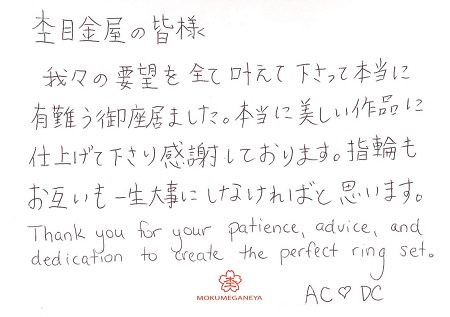 杢目金屋の皆様
我々の要望を全て叶えて下さって本当に
有難う御座居ました。本当に美しい作品に
仕上げて下さり感謝しております。指輪も
お互いも一生大事にしなければと思います。
Thank you for your patience, advice, and
dedication to create the perfect ring set.
MOKUMEGANEYA
AC♡DC